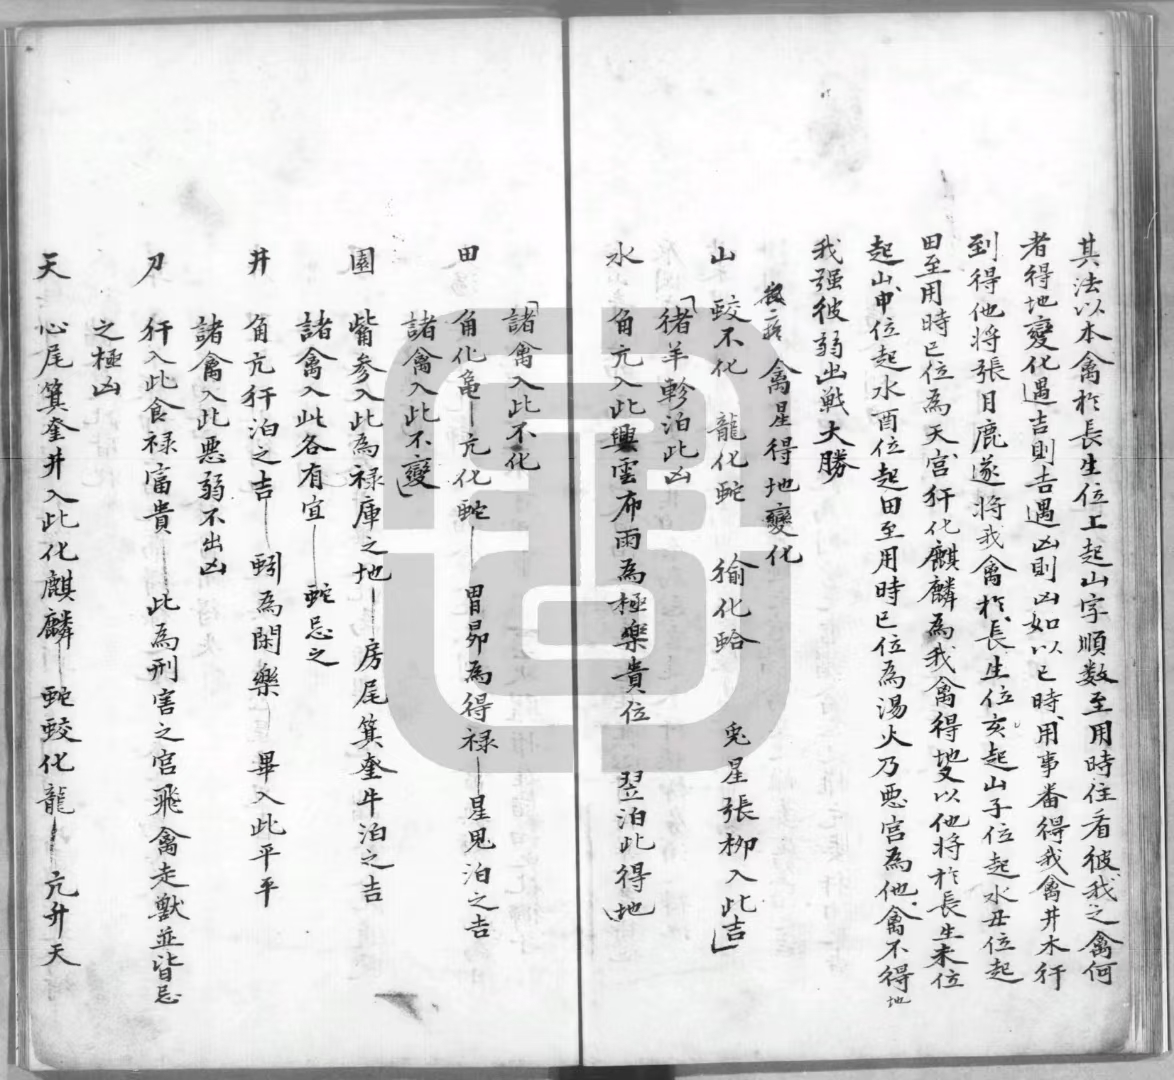 其法以本禽扵長生位上起山字順数至用時住看彼我之禽何
者得地變化遇吉則吉遇凶則凶如以巳時用事番得我禽井木犴
到得他將張月鹿遂將我禽扵長生位亥起山子位起水丑位起
田至用時巳位為天宮犴化麒麟為我禽得地又以他將扵長生未位
起山申位起水酉位起田至用時巳位為湯火乃悪宮為他禽不得地
我强彼弱出戦大勝
禽星得地變化
山 蛟不化 龍化蛇 㺄化蛤 兎星張柳入此吉
猪羊軫泊此凶
水 角亢入此興雲布雨為極樂貴位 翌泊此得地
諸禽入此不化
田 角化竜 亢化蛇 胃昴為得禄 星鬼泊之吉
諸禽入此不變
園 觜参入此為禄庫之地 房尾箕奎牛泊之吉
諸禽入此各有宜 蛇忌之
井 角亢犴泊之吉 蚓為閑樂 畢入此平平
諸禽入此悪弱不出凶
刀 犴入此食禄富貴 此為刑害之宮飛禽走獣並皆忌
之極凶
天 心尾箕奎井入此化麒麟 蛇蛟化龍 亢升天